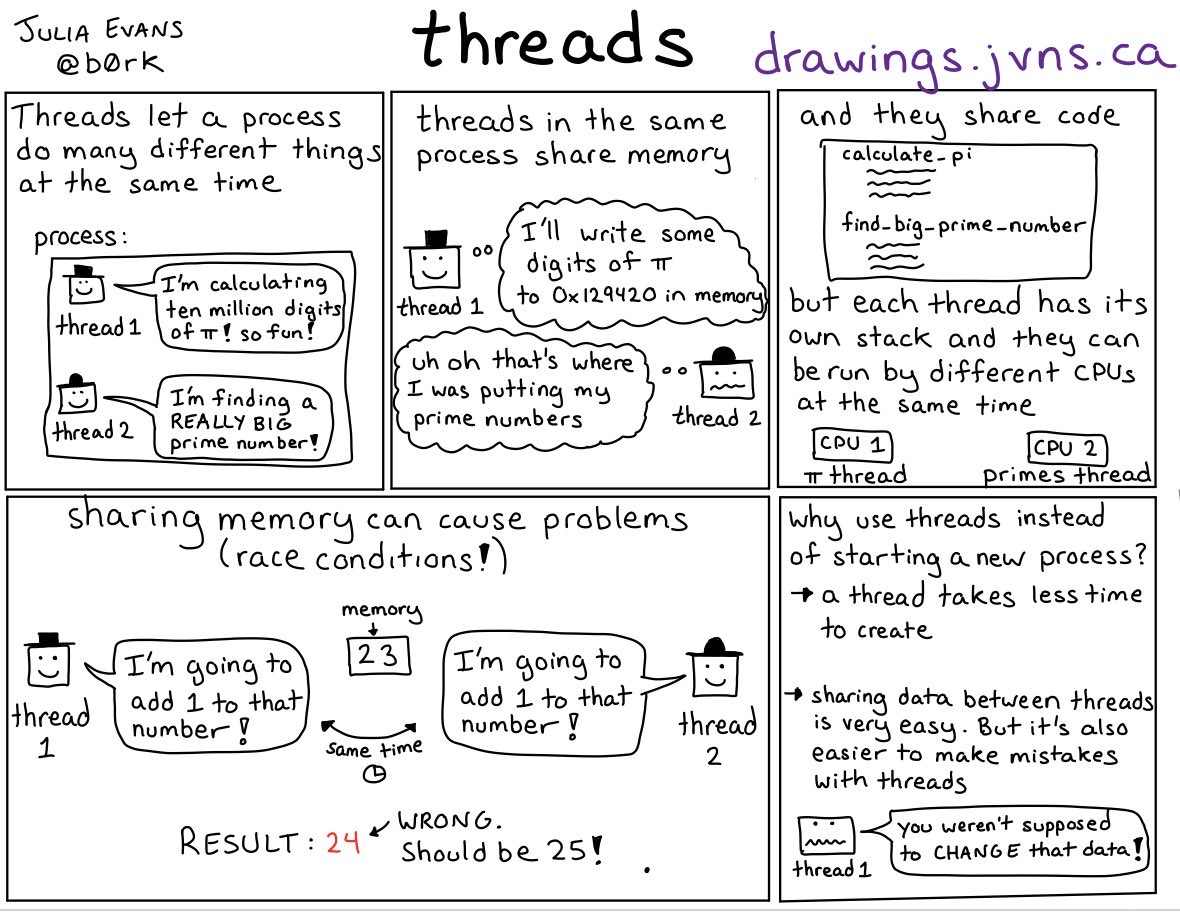 JULIA EVANS
@b0rk
threads
drawings.jvns.ca
Threads let a process
do many different things
at the same time
process:
I'm calculating
ten million digits
of π! so fun!
thread 1
I'm finding a
REALLY BIG
prime number!
thread 2
threads in the same
process share memory
I'll write some
digits of π
to 0x129420 in memory
thread 1
uh oh that's where
I was putting my
prime numbers
thread 2
and they share code
calculate_pi
find_big_prime_number
but each thread has its
own stack and they can
be run by different CPUs
at the same time
CPU 1
π thread
CPU 2
primes thread
sharing memory can cause problems
(race conditions!)
memory
23
I'm going to
add 1 to that
number!
thread
1
I'm going to
add 1 to that
number!
thread
2
same time
RESULT: 24
WRONG.
Should be 25!
why use threads instead
of starting a new process?
→ a thread takes less time
to create
→ sharing data between threads
is very easy. But it's also
easier to make mistakes
with threads
you weren't supposed
to CHANGE that data!
thread 1